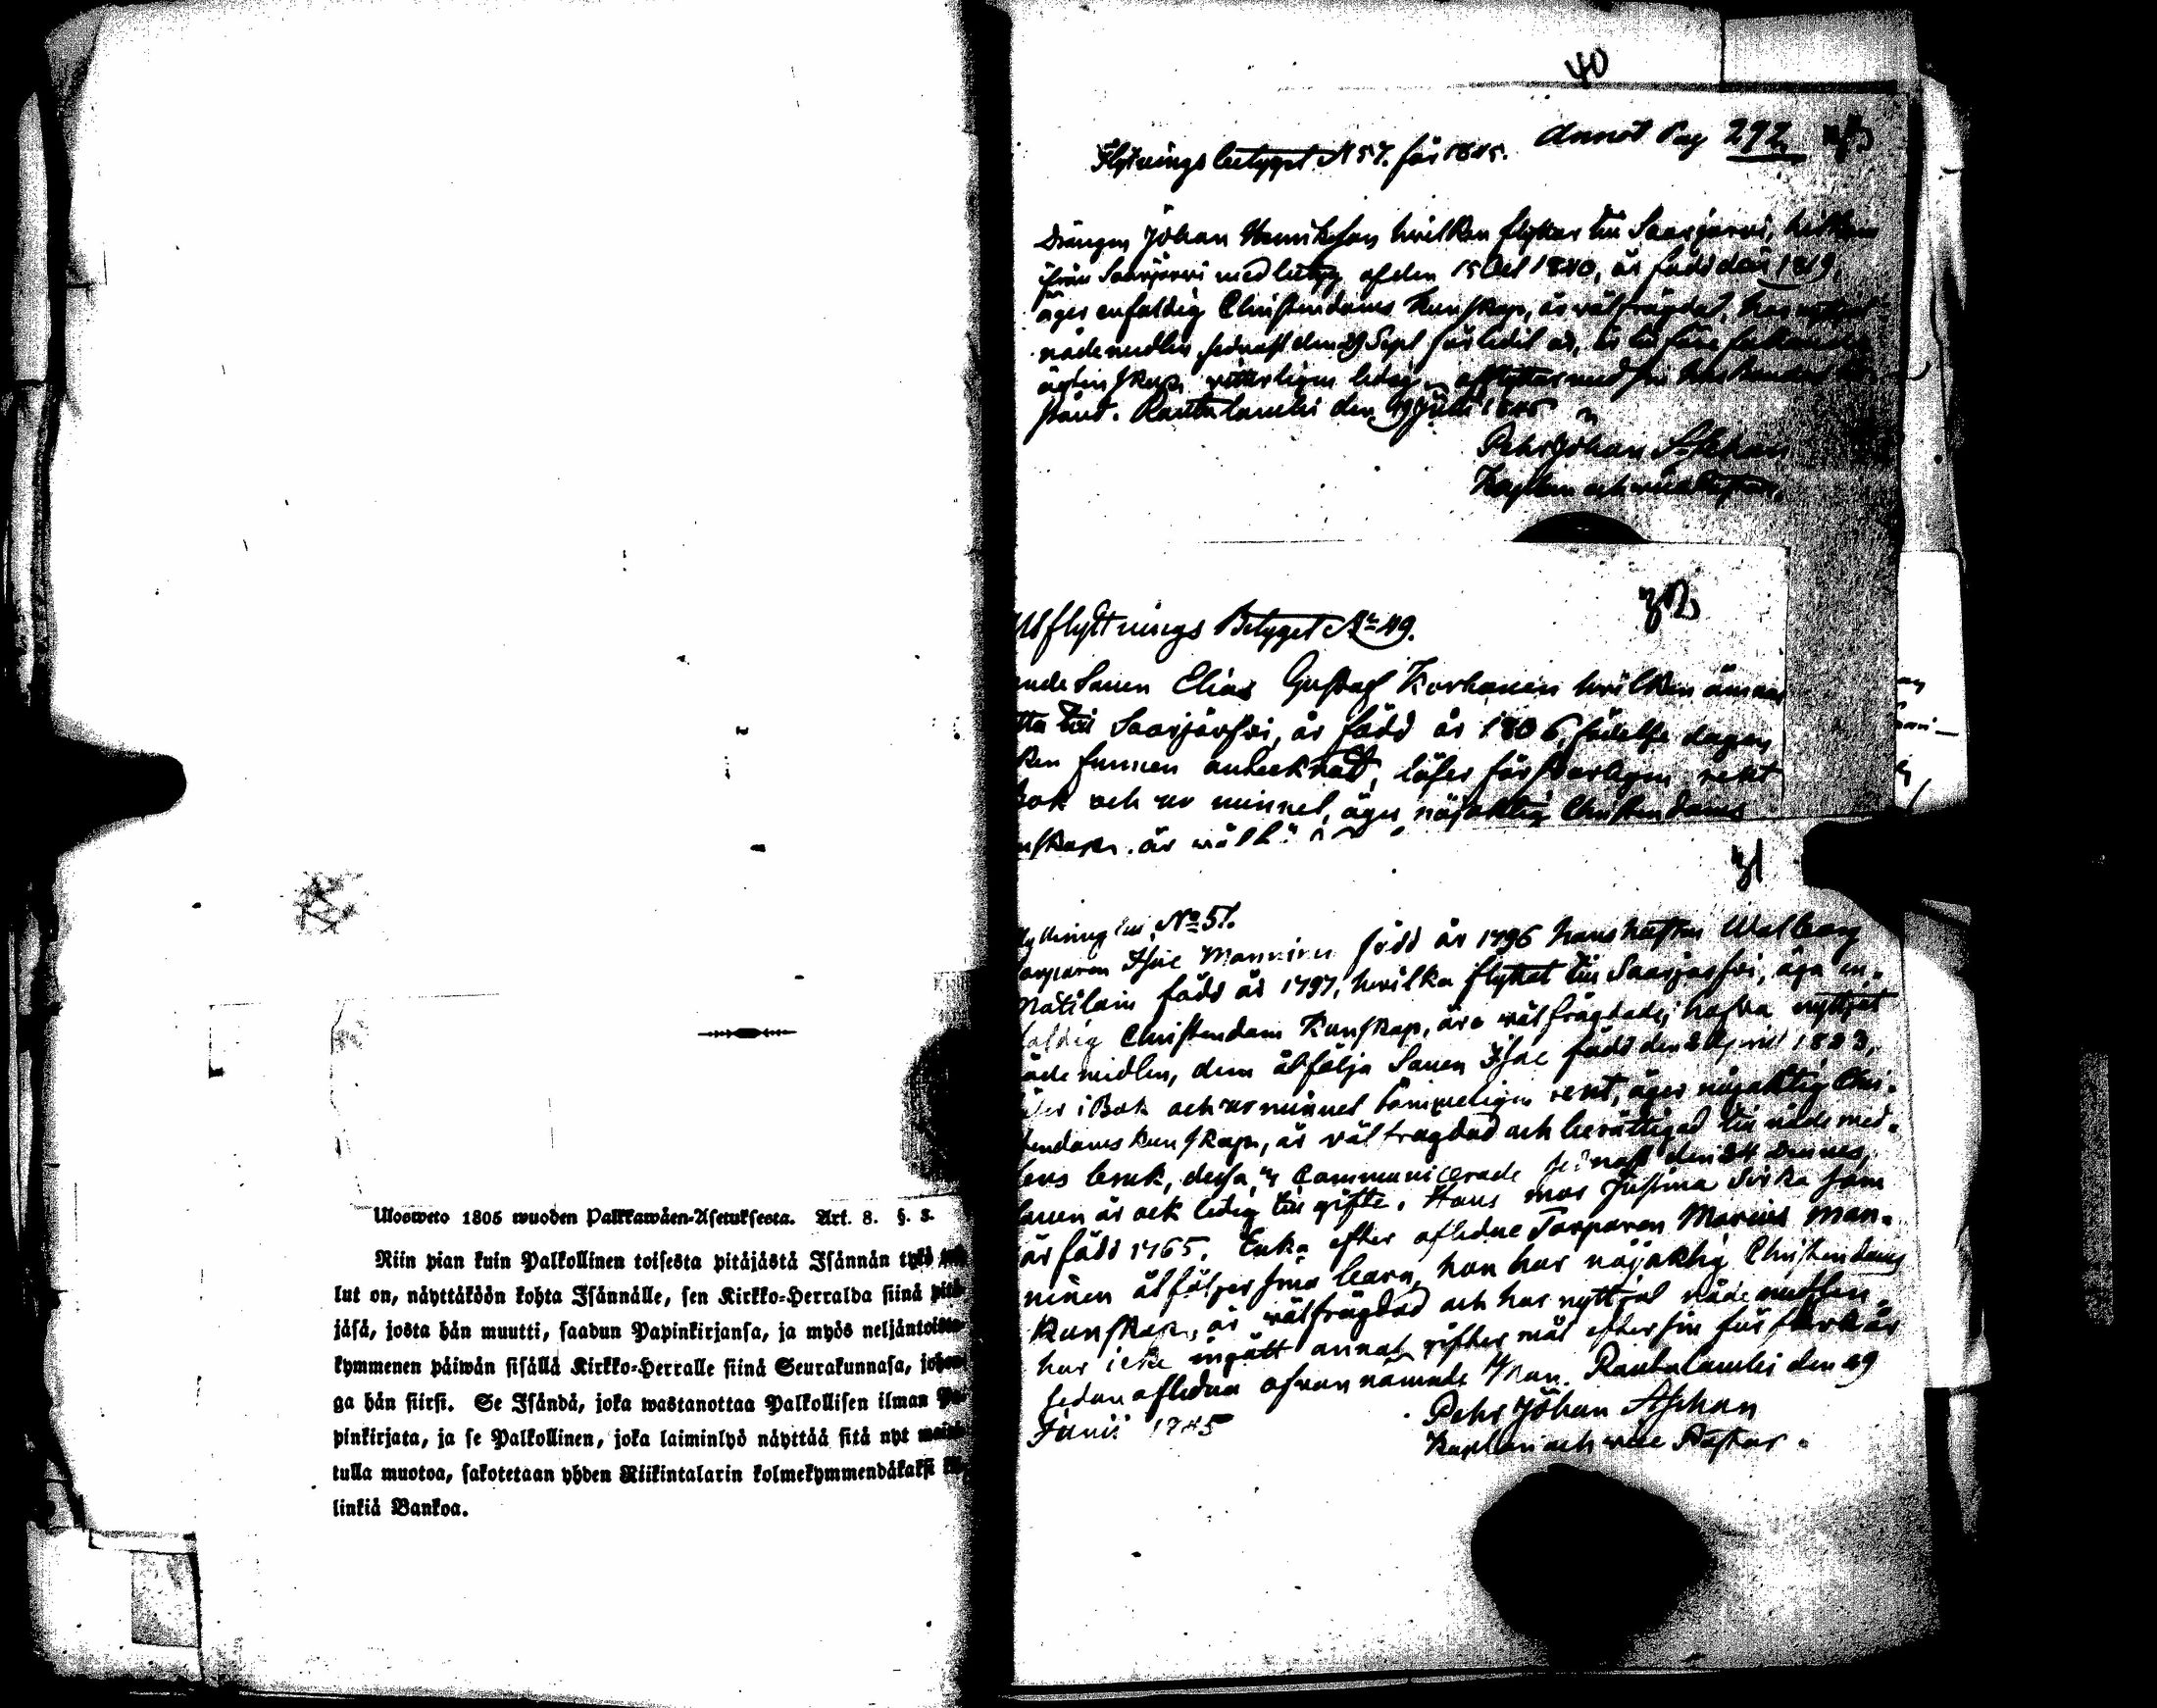 Ulosweto 1805 wuoden Palkkawäen-Asetuksesta. Art. 8. §. 3.
Niin pian kuin Palkollinen toisesta pitäjästä Isännän tykö
lut on, näyttäköön kohta Isännälle, sen Kirkko-Herralda siinä pitä-
jäsä, josta hän muutti, saadun Papinkirjansa, ja myös neljäntoista-
kymmenen päiwän sisällä Kirkko-Herralle siinä Seurakunnasa, johon-
ga hän siirsi. Se Isändä, joka wastanottaa Palkollisen ilman Pa-
pinkirjata, ja se Palkollinen, joka laiminlyö näyttää sitä nyt
tulla muotoa, sakotetaan yhden Riikintalarin kolmekymmendäkaksi
linkiä Bankoa.
40
Flyttnings betyget N 57. för 1845. Annot Pag 292
Drängen Johan Henriksson hvilken flyttar till Saarijärvi, hitkom
ifrån Saarijärvi med betyg af den 15 Oct 1840, är född där 1819,
äger enfaldig Christendoms kunskap, är välfrägdad, har
nådemedlen sednast den 29 Sept
ägtenskap ledig, afflyttar med
Rautalambi den 19 Juni 1845
Pehr Johan Aschan
Kaplan och
32
Utflyttnings Betyget No 49.
Sonen Elias Gustaf Korhonen hvilken ämnar
till Saarijärfvi, är född år 1806, födelse dagen
funnen antecknad, läser försvarligen rent
bok och ur minnet, äger nöjaktig Christendoms
är
31
No 51.
Isac Manninen född år 1796 hans hustru Walborg
Matilain född år 1797, hvilka flyttat till Saarijärfvi, äga en-
faldig Christendom kunskap, äro välfrägdade, hafva nyttjat
nåde medlen, dem åtfölja Sonen Isac född den 2 April 1823,
i Bok och ur minnet lämpeligen rent, äger nöjaktig Chri-
stendoms kunskap, är väl fragdad och berättigad till nåde med-
lens bruk, dessa communicerade sednast den 24 dennes,
Sonen är ock ledig till gifte. Hans mor Justina Sirka som
är född 1765. Enka efter aflidne Torparen Marcus Man-
ninen åtföljer sina barn, hon har nöjaktig Christendoms
kunskap, är välfrägdad och har nyttjat nåde medlen,
har icke ingått annat gifter mål efter sin för flera år
sedan aflidna ofvan nämnde Man. Rautalambi den 29
Junii 1845
Pehr Johan Aschan
Kaplan och vice Pastor.